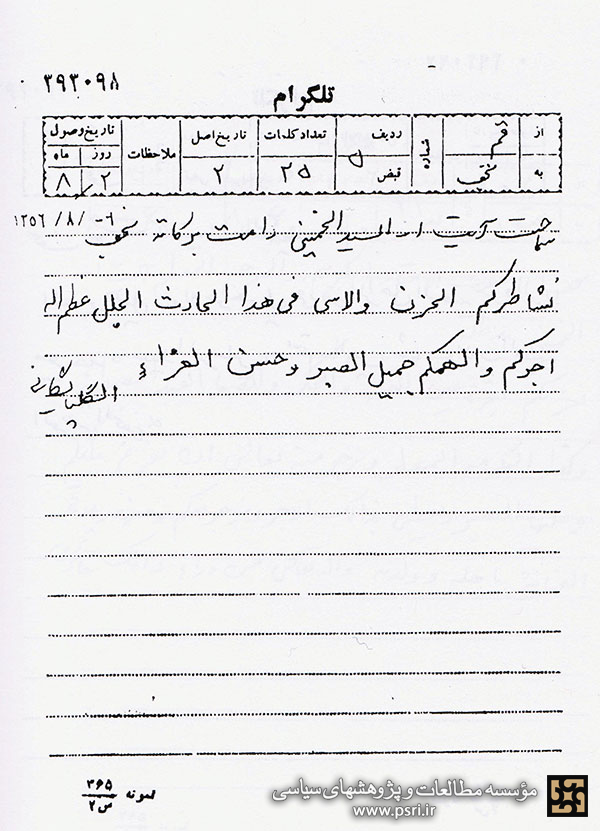 ۳۹۳۰۹۸
تلگرام
از قم شماره ردیف تعداد کلمات تاریخ اصل ملاحظات تاریخ وصول
روز ماه
به نجف قبض ۲۵ ۲ ۲ ۸
سماحت آیت اله السید الخمینی دامت برکاته نجف ۶-/۸/۱۳۵۶
نشاطرکم الحزن والاسی فی هذا الحادث الجلل عظم اله
اجرکم والهمکم جمیل الصبر وحسن العزاء الگلپایگانی
نمونه ۳۶۵
س ۲
مؤسسه مطالعات و پژوهشهای سیاسی
www.psri.ir